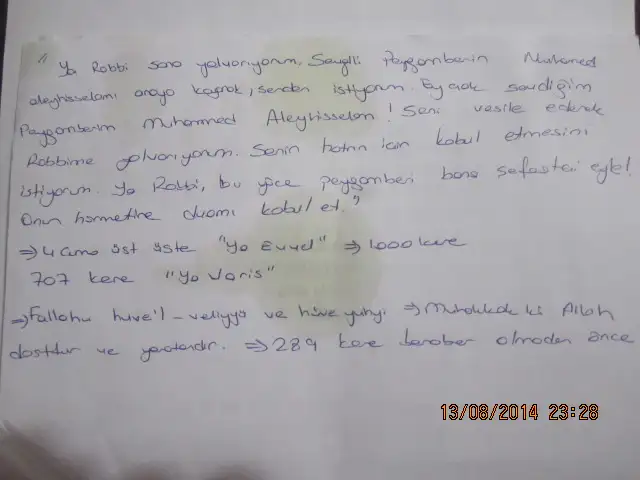 "Ya Rabbi sana yalvarıyorum. Sevgili Peygamberin Muhamed
aleyhisselamı araya koyarak, senden istiyorum. Ey çok sevdiğim
Peygamberim Muhammed Aleyhisselam! Seni vesile ederek
Rabbime yalvarıyorum. Senin hatrın için kabul etmesini
istiyorum. Ya Rabbi, bu yüce peygamberi bana şefaatçi eyle!
Onun hürmetine duamı kabul et."
⇒ 4 cuma üst üste "Ya Evvel" ⇒ 1000 kere
707 kere "Ya Varis"
⇒ Fallahu huve'l - veliyyü ve hüve yuhyi ⇒ Muhakkak ki Allah
dosttur ve yaratandır. ⇒ 289 kere beraber olmadan önce
13/08/2014 23:28